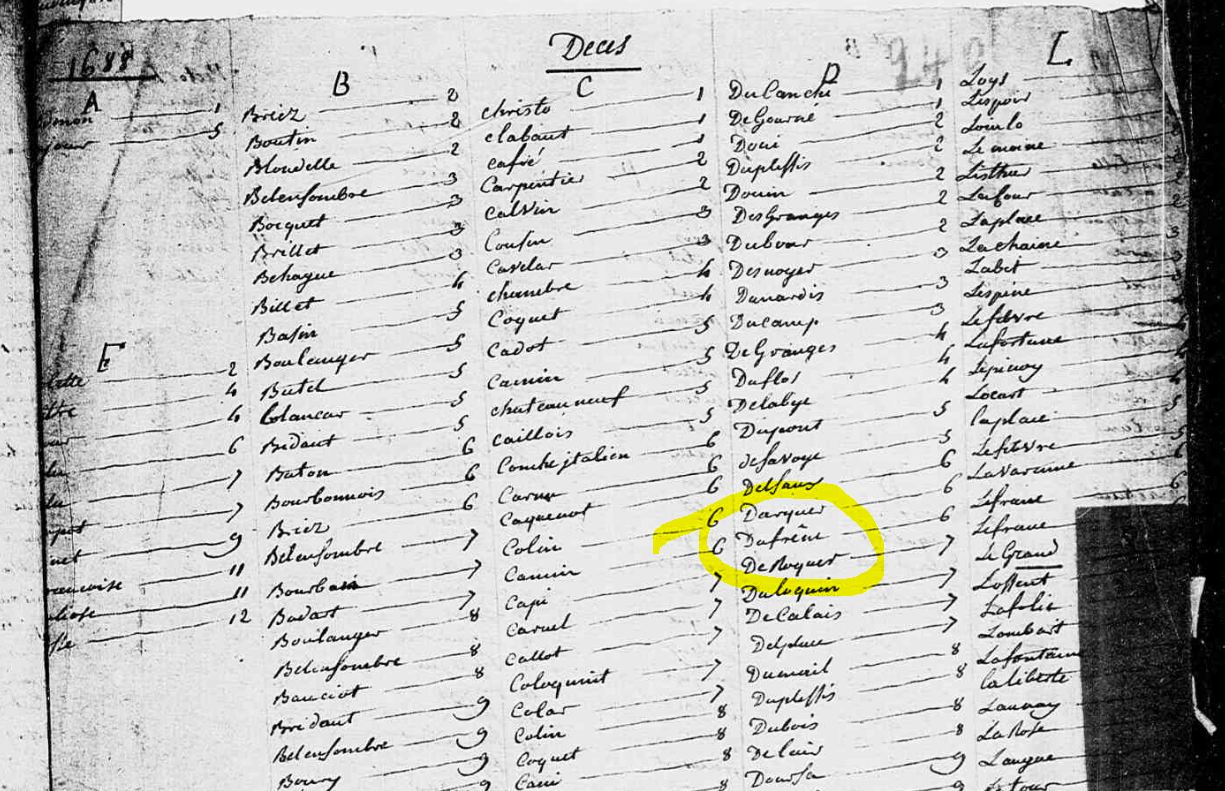 Deces
1688
A
1
5
E
2
4
4
6
7
7
9
11
11
12
B
Briez 2
Boutin 2
Blondelle 2
Belensombre 3
Bocquet 3
Brillet 3
Behague 3
Billet 4
Basin 5
Boulanger 5
Butel 5
Colancar 5
Bridaut 5
Baton 6
Bourbonnois 6
Briez 6
Belensombre 7
Bourbain 7
Badart 7
Boulanger 8
Belensombre 8
Bauciot 8
Bridaut 9
Belensombre 9
Boury 9
C
Christo 1
clabaut 1
cafié 1
Carpentier 2
Calvin 2
Cousin 3
Cavelar 3
chambre 4
Coquet 4
Cadot 5
Camin 5
chateauneuf 5
caillois
Comte italien 6
Carun 6
Caquenot 6
Colin 6
Camin 6
Capi 7
Caruel 7
Callot 7
Coloquint 7
Colar 7
Colin 8
Coquet 8
Cani
D
DuCanché 1
DeGourné 1
Doui 2
Duplessis 2
Douin 2
DesGranges 2
Dubour 2
Desnoyer 3
Dunardis 3
Ducamp 3
DeGranges 4
Duflos 4
Delabye 4
Dupont 5
desavoye 5
Delsaux 6
Darquer 6
Dufrêne 6
DeRoquer 7
Duloquin 7
DeCalais 7
Delplace 7
Dumeril 8
Duplessis 8
Dubois 8
Delair 8
Doursa 9
L
Loys
Lespoir
Loulo
Le moine
Listhier
Lafour
Laplace
Lachaine
Labet
Lespine
Lefebvre
Lafortune
Lepinoy
Locart
Laplace
Lefebvre
Lavarenne
Lefranc
Lefranc
Le Grand
Loffent
Lafolie
Lombart
Lafontaine
laliberte
Launay
La Rose
Langue